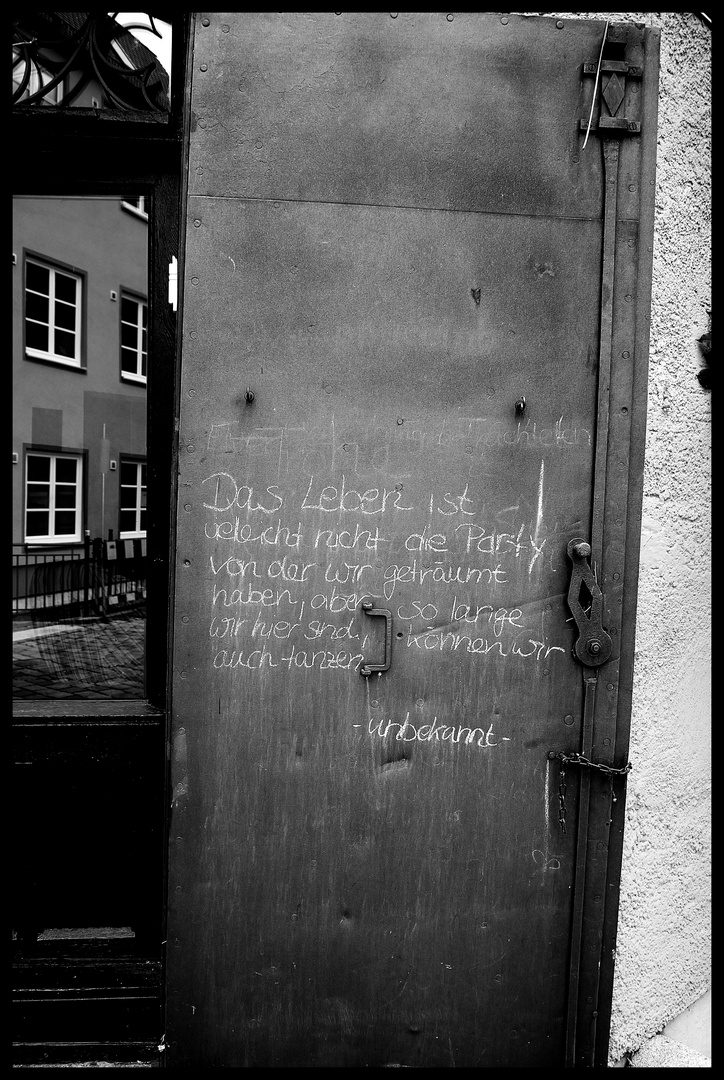 betrachteten
Das Leben ist
vieleicht nicht die Party
von der wir geträumt
haben, aber so lange
wir hier sind, können wir
auch tanzen
-unbekannt-